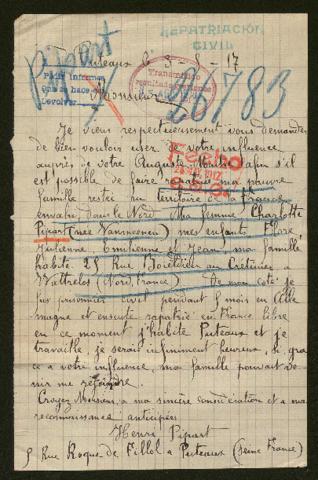 REPATRIACIÓN
CIVIL
Pipart
Puteaux le 3-8-17
Pedir informes
que se hace
devolver
26783
Monsieur
Je viens respectueusement vous demander
de bien vouloir user de votre influence
auprès de votre Auguste Maître afin s'il
est possible de faire rapatrier ma pauvre
famille restée en territoire de la France
envahi, dans le Nord. Ma femme, Charlotte
Pipart (née Vannescu) mes enfants Flore
Julienne Emilienne et Jean, ma famille
habite 25 Rue au Crétinier a
Wattrelos (Nord, France) De mon coté je
fus prisonnier civil pendant 8 mois en Alle
magne et ensuite rapatrié en France libre
en ce moment j'habite Puteaux et je
travaille, je serais infiniment heureux, si grace
a votre influence, ma famille pouvait ve
nir me rejoindre.
Croyez Monsieur, a ma sincère considération et a ma
reconnaissance anticipée
Henri Pipart
5 Rue Roque de Fillol a Puteaux (Seine France)